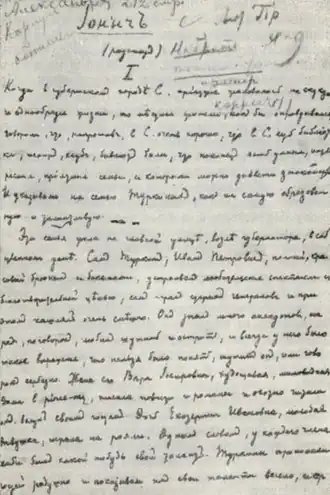 Іонычъ
(разсказъ)
I
Когда въ губернскомъ городѣ С. пріѣзжіе жаловались на скуку
и однообразіе жизни, то мѣстные жители, какъ бы оправдываясь,
говорили, что, напротивъ, въ С. очень хорошо, что въ С. есть библіоте-
ка, театръ, клубъ, бываютъ балы, что наконецъ есть умныя, инте-
ресныя, пріятныя семьи, съ которыми можно завести знакомства.
И указывали на семью Туркиныхъ, какъ на самую образован-
ную и талантливую.
Эта семья жила на главной улицѣ, возлѣ губернатора, въ соб-
ственномъ домѣ. Самъ Туркинъ, Иванъ Петровичъ, полный, кра-
сивый брюнетъ съ бакенами, устраивалъ любительскіе спектакли съ
благотворительной цѣлью, самъ игралъ старыхъ генераловъ и при
этомъ кашлялъ очень смѣшно. Онъ зналъ много анекдотовъ, ша-
радъ, поговорокъ, любилъ шутить и острить, и всегда у него было
такое выраженіе, что нельзя было понять, шутитъ онъ, или гово-
ритъ серьезно. Жена его, Вера Іосифовна, худощавая, миловидная
дама въ pince-nez, писала повѣсти и романы и охотно читала
ихъ вслухъ своимъ гостямъ. Дочь Екатерина Ивановна, молодая
дѣвушка, играла на роялѣ. Однимъ словомъ, у каждаго члена
семьи былъ какой нибудь свой талантъ. Туркины принимали
гостей радушно и показывали имъ свои таланты весело, съ сер-